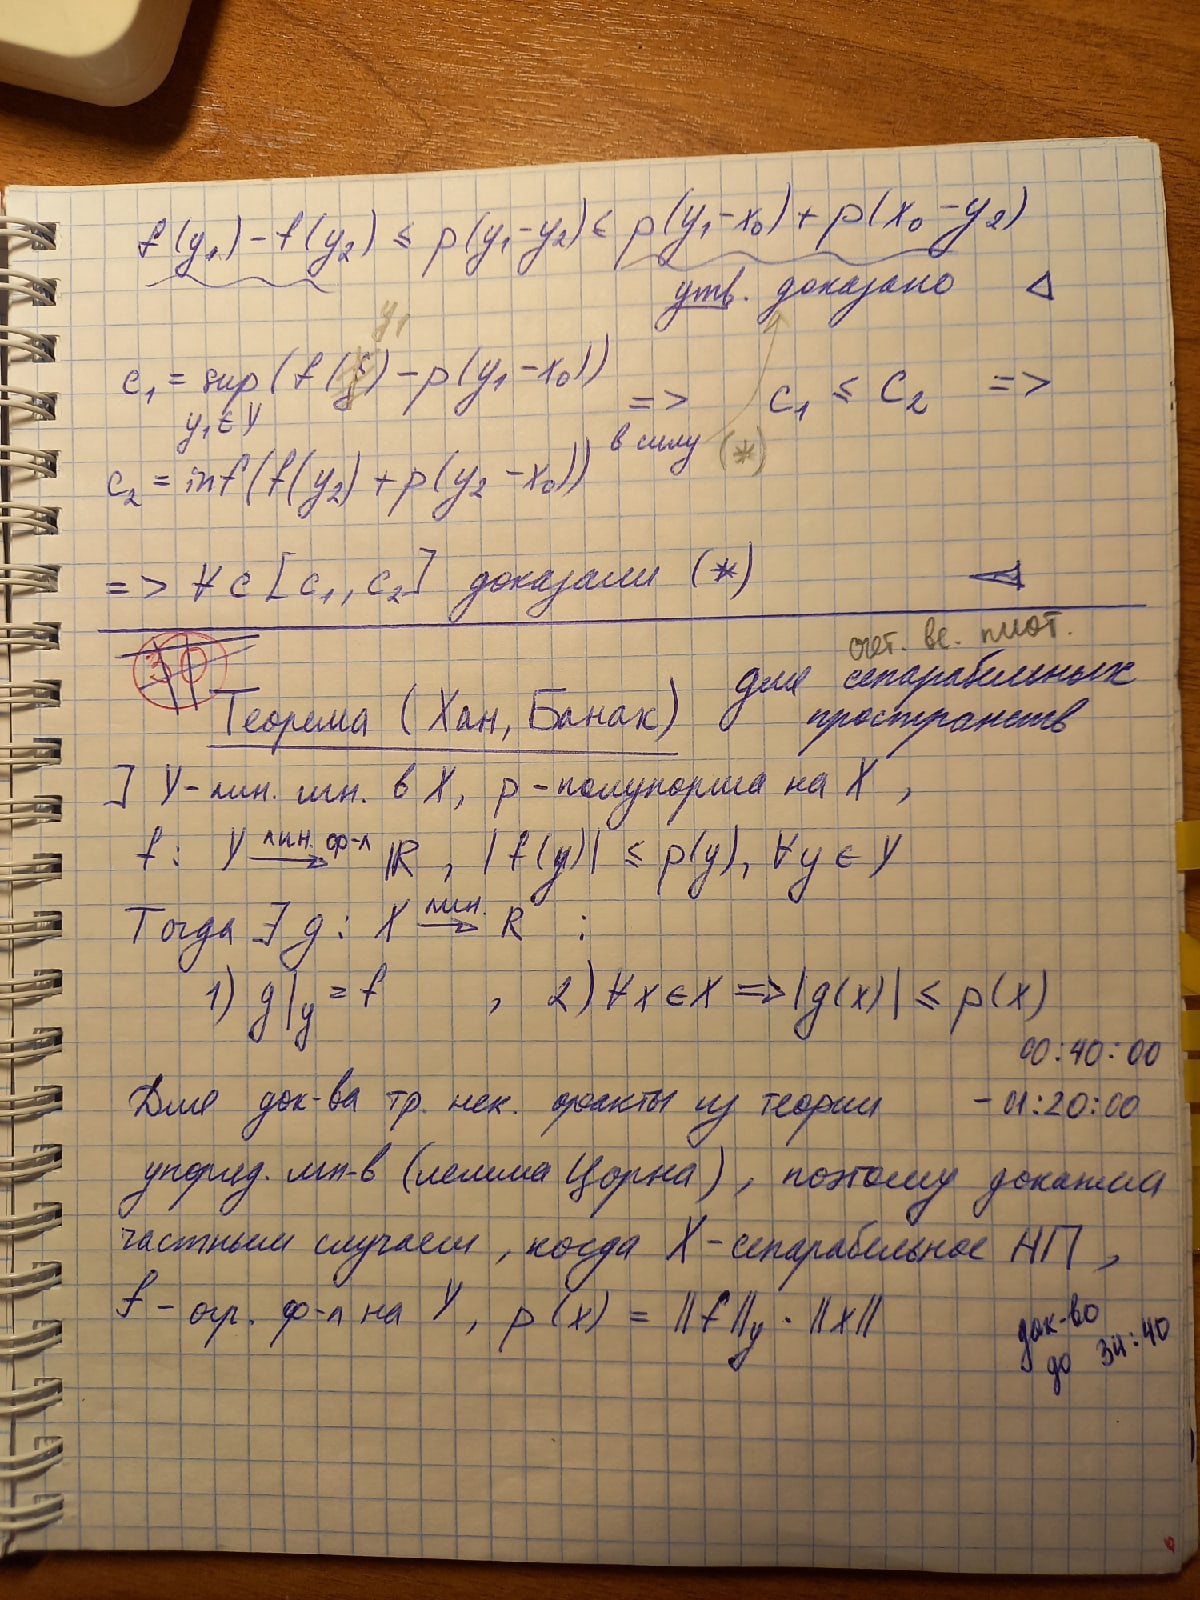 f(y₁) - f(y₂) ≤ p(y₁-y₂) ≤ p(y₁-x₀) + p(x₀-y₂)
утв. доказано △
y₁
c₁ = sup (f(y) - p(y₁-x₀)) => c₁ ≤ c₂ =>
y₁∈Y в силу (*)
c₂ = inf (f(y₂) + p(y₂-x₀))
=> ∀ c [c₁, c₂] доказали (*) ◁
30
счет. вс. плот.
Теорема (Хан, Банах) для сепарабельных
пространств
] Y-лин. мн. в X, p-полунорма на X,
f: Y лин. ф-л → ℝ, |f(y)| ≤ p(y), ∀y∈Y
Тогда ∃ g: X лин. → R :
1) g|y = f , 2) ∀x∈X => |g(x)| ≤ p(x)
00:40:00
Для док-ва тр. нек. факты из теории - 01:20:00
упоряд. мн-в (лемма Цорна), поэтому докажем
частным случаем, когда X-сепарабельное НП,
f - огр. ф-л на Y, p(x) = ||f||y · ||x||
док-во
до 34:40